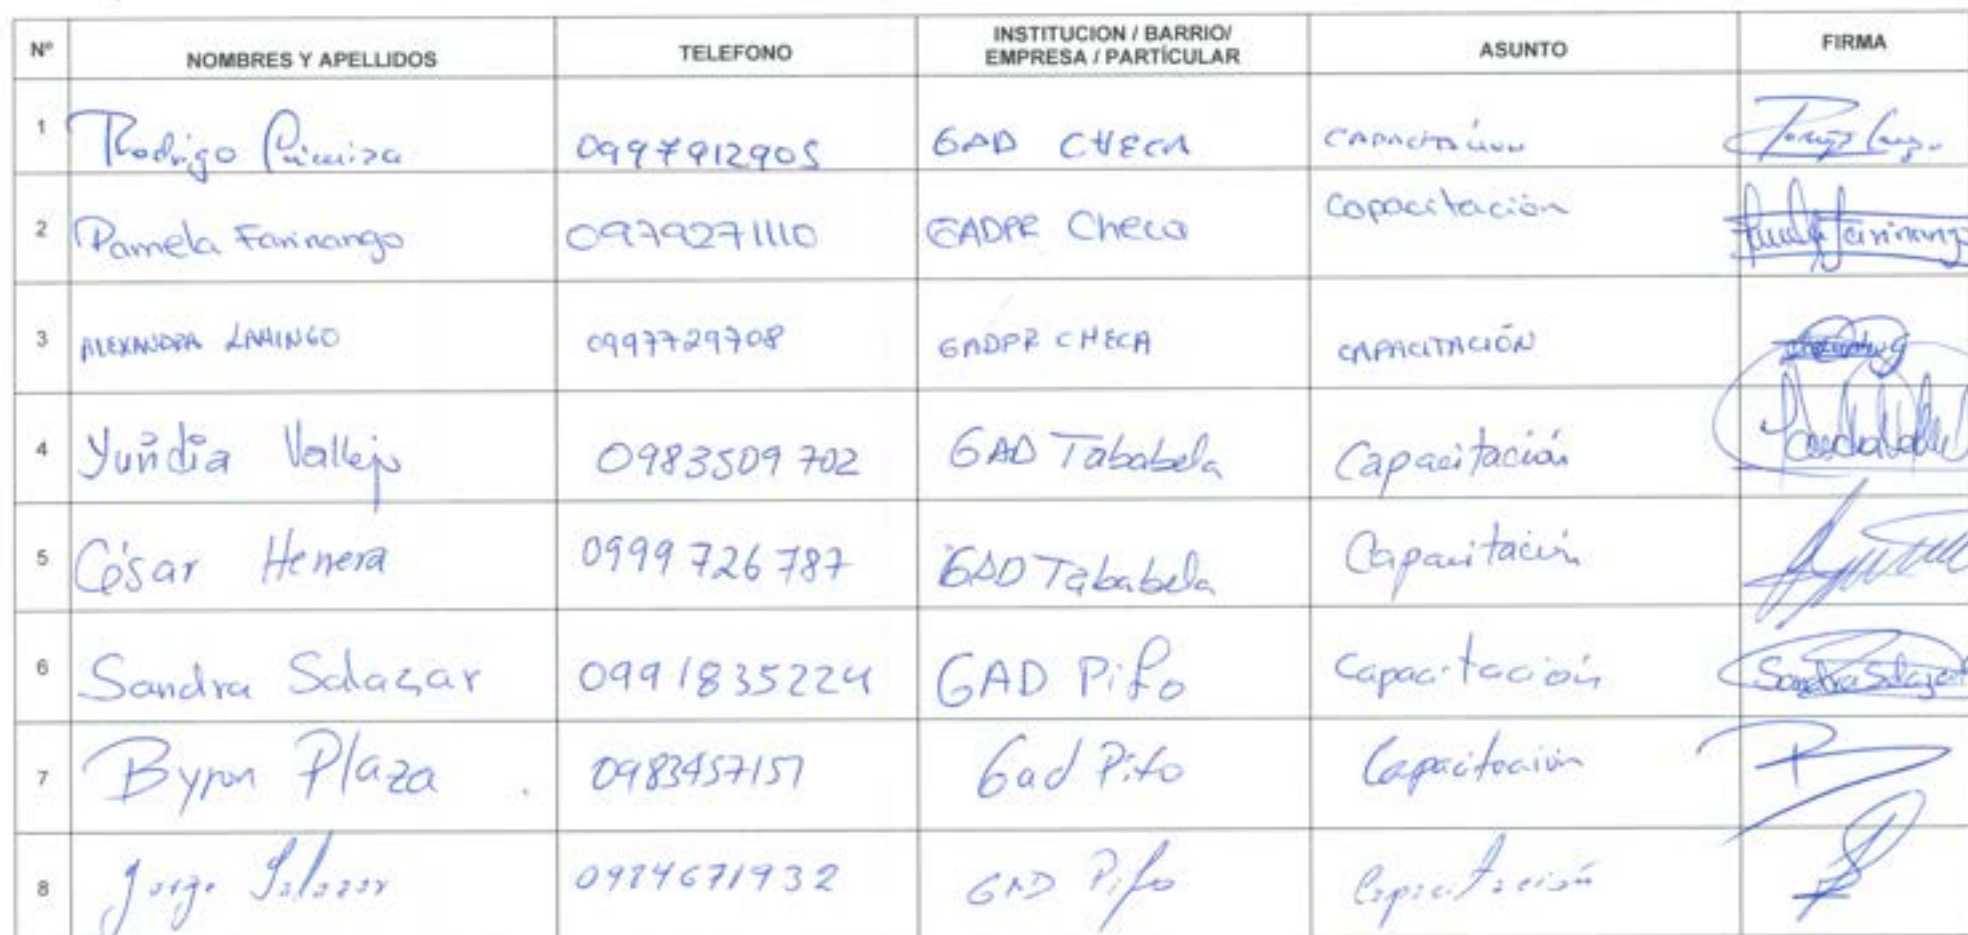 Nº NOMBRES Y APELLIDOS TELEFONO INSTITUCION / BARRIO/ EMPRESA / PARTÍCULAR ASUNTO FIRMA
1 Rodrigo 0997912905 GAD CHECA CAPACITACIÓN
2 Pamela Farinango 0979271110 GADPR Checa Capacitación
3 ALEXANDRA 0997729708 GADPR CHECA CAPACITACIÓN
4 Yundia Vallejo 0983509702 GAD Tababela Capacitación
5 César Herrera 0999726787 GAD Tababela Capacitación
6 Sandra Salazar 0991835224 GAD Pifo Capacitación Sandra Salazar
7 Byron Plaza 0983457157 Gad Pifo Capacitación
8 Jorge Salazar 0984671932 GAD Pifo Capacitación